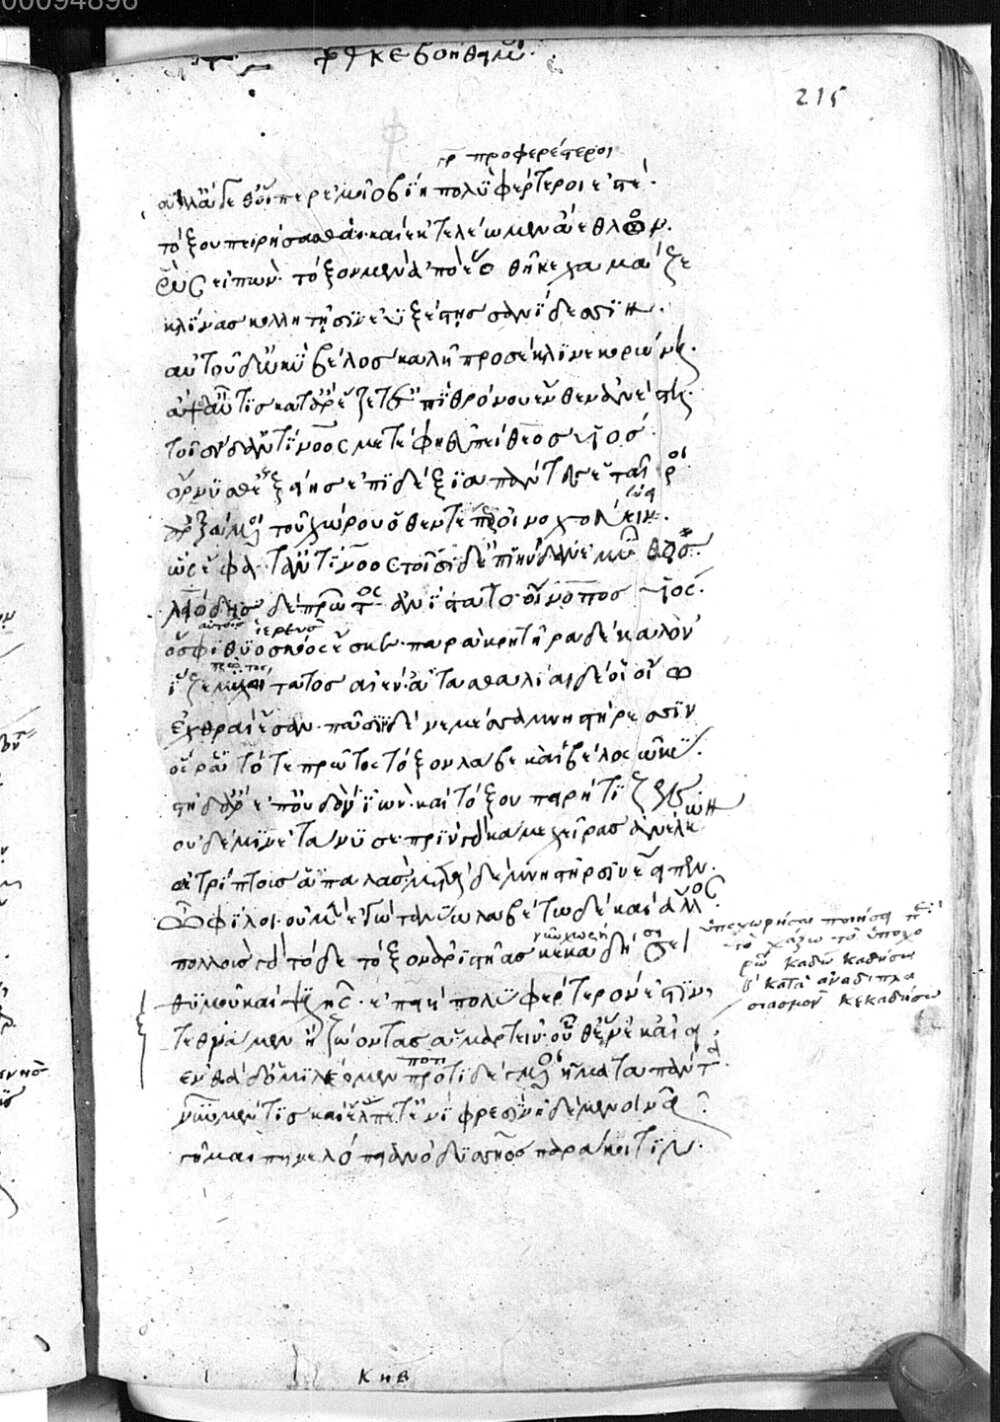 κε βοηθη μοι
215
γρ προφερέστεροι
ἀλλ' ἄγεθ' οἵπερ ἐμεῖο βίη πολὺ φέρτεροι ἐστέ.
τόξου πειρήσασθαι καὶ ἐκτελέωμεν ἄεθλον.
ὣς εἰπὼν τόξον μὲν ἀπὸ ἕο θῆκε χαμάζε
κλίνας κολλητῆσιν ἐϋξέστης σανίδεσσιν.
αὐτοῦ δ' ὠκὺ βέλος καλῆ προσέκλινε κορώνη.
ἂψ δ' αὖτις κατ' ἂρ ἕζετ' ἐπὶ θρόνου ἔνθεν ἀνέστη.
τοῖσιν δ' ἀντίνοος μετέφη εὐπείθεος υἱός.
ὄρνυσθ' ἑξείης ἐπιδέξια πάντες ἑταῖροι
ἀρξάμενοι τοῦ χώρου ὅθεν τέ περ οἰνοχοεύειν.
ὣς ἔφατ' ἀντίνοος τοῖσι δ' ἐπιήνδανε μῦθος.
λειώδης δὲ πρῶτος ἀνίστατο οἴνοπος υἱός.
αὐτοῖς ἱερεὺς
ὅς σφι θυοσκόος ἔσκε. παρὰ κρητῆρα δὲ καλὸν
ἷζε μυχοίτατος αἰέν. ἀτασθαλίαι δέ οἱ οἴω
ἐχθραὶ ἔσαν. πᾶσιν δὲ νεμέσσα μνηστήρεσσιν
ὅς ῥα τότε πρῶτος τόξον λάβε καὶ βέλος ὠκύ.
στῆ δ' ἂρ ἐπ' οὐδὸν ἰὼν. καὶ τόξου πειρήτιζεν
οὐδέ μιν ἐτάνυσε. πρὶν γὰρ κάμε χεῖρας ἀνέλκων
ἀτρίπτους ἀπαλάς. μετὰ δὲ μνηστῆρσιν ἔειπεν.
ὦ φίλοι. οὐ μὲν ἐγὼ τανύω λαβέτω δὲ καὶ ἄλλος.
πολλοὺς γὰρ τόδε τόξον ἀριστῆας κεκαδήσει
ὑποχωρῆσαι ποιήσει
χάζω τὸ ὑποχο
ρῶ καδῶ καδήσω
κατὰ ἀναδιπλα
σιασμὸν κεκαδήσω
θυμοῦ καὶ ψυχῆς. ἐπειὴ πολὺ φέρτερόν ἐστιν,
τεθνάμεν ἢ ζώοντας ἁμαρτεῖν. οὗ θ' ἕνεκ' αἰεί
ποτι
ἐνθάδ' ὁμιλέομεν προτιδέγμενοι ἤματα πάντα.
νῦν μέν τις καὶ ἔλπετ' ἐνὶ φρεσὶν ἠδὲ μενοινᾶ
γῆμαι πηνελόπειαν ὀδυσσῆος παράκοιτιν.